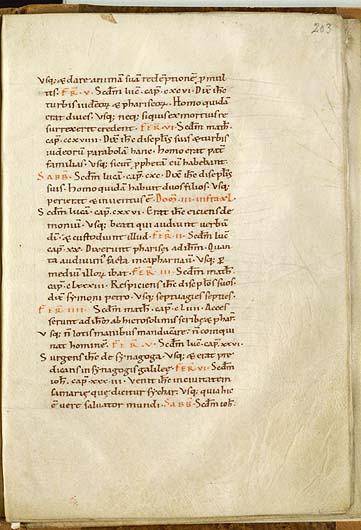 203
usq; & dare animā suā redēptionē p mul
tis. FER. V. Scdm̄ luc̄. cap̄. cxcvi. Dix̄ ih̄s
turbis iudeor̄ & phariseor̄. Homo quidā
erat dives. usq; neq; siquis ex mortuis re
surrexerit credent. FER VI. Scdm̄ math̄.
cap̄. ccxviii. Dix̄ ih̄s disciplis suis & turbis
iudeorū parabolā hanc. Homo erat pat̄
familias. usq; sicut pphetā eū habebant.
SABB̄. Scdm̄ lucā. cap̄. cxc. Dix̄ ih̄s disciplis
suis. homo quidā habuit duos filios. Usq;
perierat & inventus ē. Dom̄. iii. infra xl.
Scdm̄ lucā. cap̄. cxxvi. Erat ih̄s eiciens de
moniū. usq; beati qui audiunt verbū
dī & custodiunt illud. FER. ii. Scdm̄ luc̄
cap̄. xx. Dixerunt pharisei ad ih̄m. Quan
ta audivim; facta in capharnaū. usq; p̄
mediū illor̄ ibat. FER. iii. Scdm̄ math̄.
cap̄. clxxxiii. Respiciens ih̄s discip̄los suos.
dix̄ simoni petro. Usq; septuagies septies.
FER. iiii. Scdm̄ math̄. cap̄. liiii. Acces
serunt ad ih̄m ab hierosolimis scribę & phar̄.
Usq; n̄ lotis manibus manducare. n̄ coinqui
nat hominē. FER. V. Scdm̄ luc̄. cap̄. xxvi.
Surgens ih̄s de synagoga. Usq; & erat pre
dicans in synagogis galileę. FER. VI. Scdm̄
ioh̄. cap̄. xxx.iii. Venit ih̄s in civitatem
samarię quę dicitur sychar. Usq; quia hic
ē vere salvator mundi. SABB̄. Scdm̄ ioh̄.